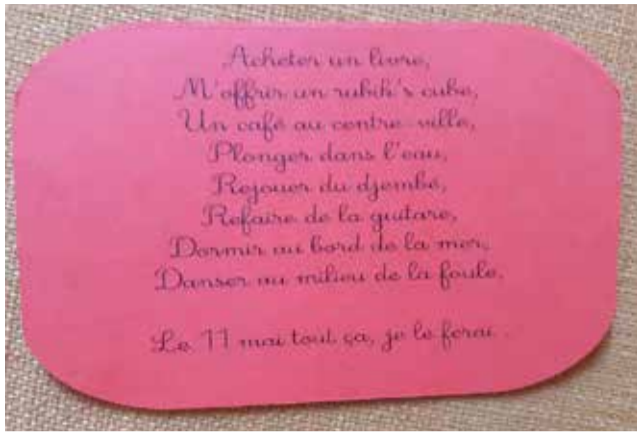 Acheter un livre,
M'offrir un rubik's cube,
Un café au centre-ville,
Plonger dans l'eau,
Rejouer du djembé,
Refaire de la guitare,
Dormir au bord de la mer,
Danser au milieu de la foule.
Le 11 mai tout ça, je le ferai.